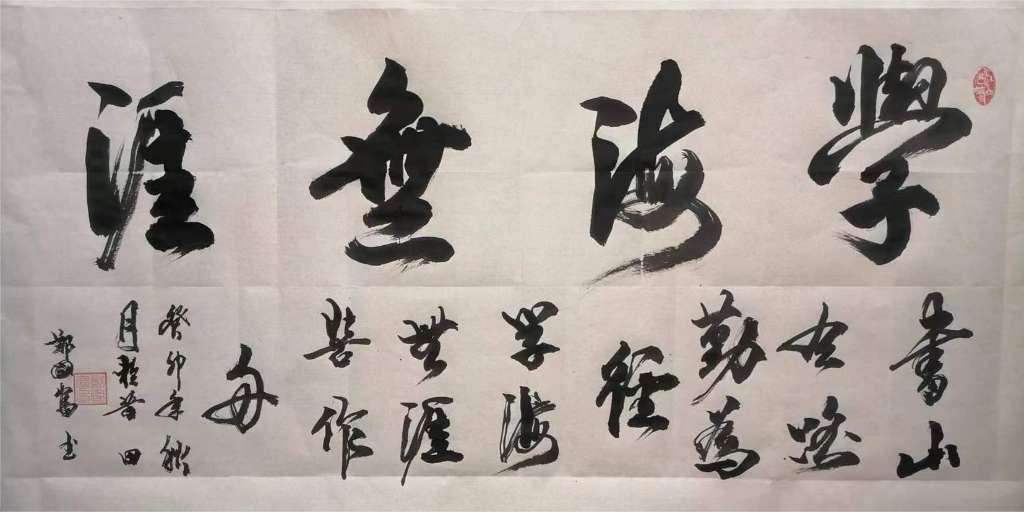 學海無涯
書山
有路
勤為
徑
学海
無涯
苦作
舟
癸卯年秋
月於莆田
鄭國 书